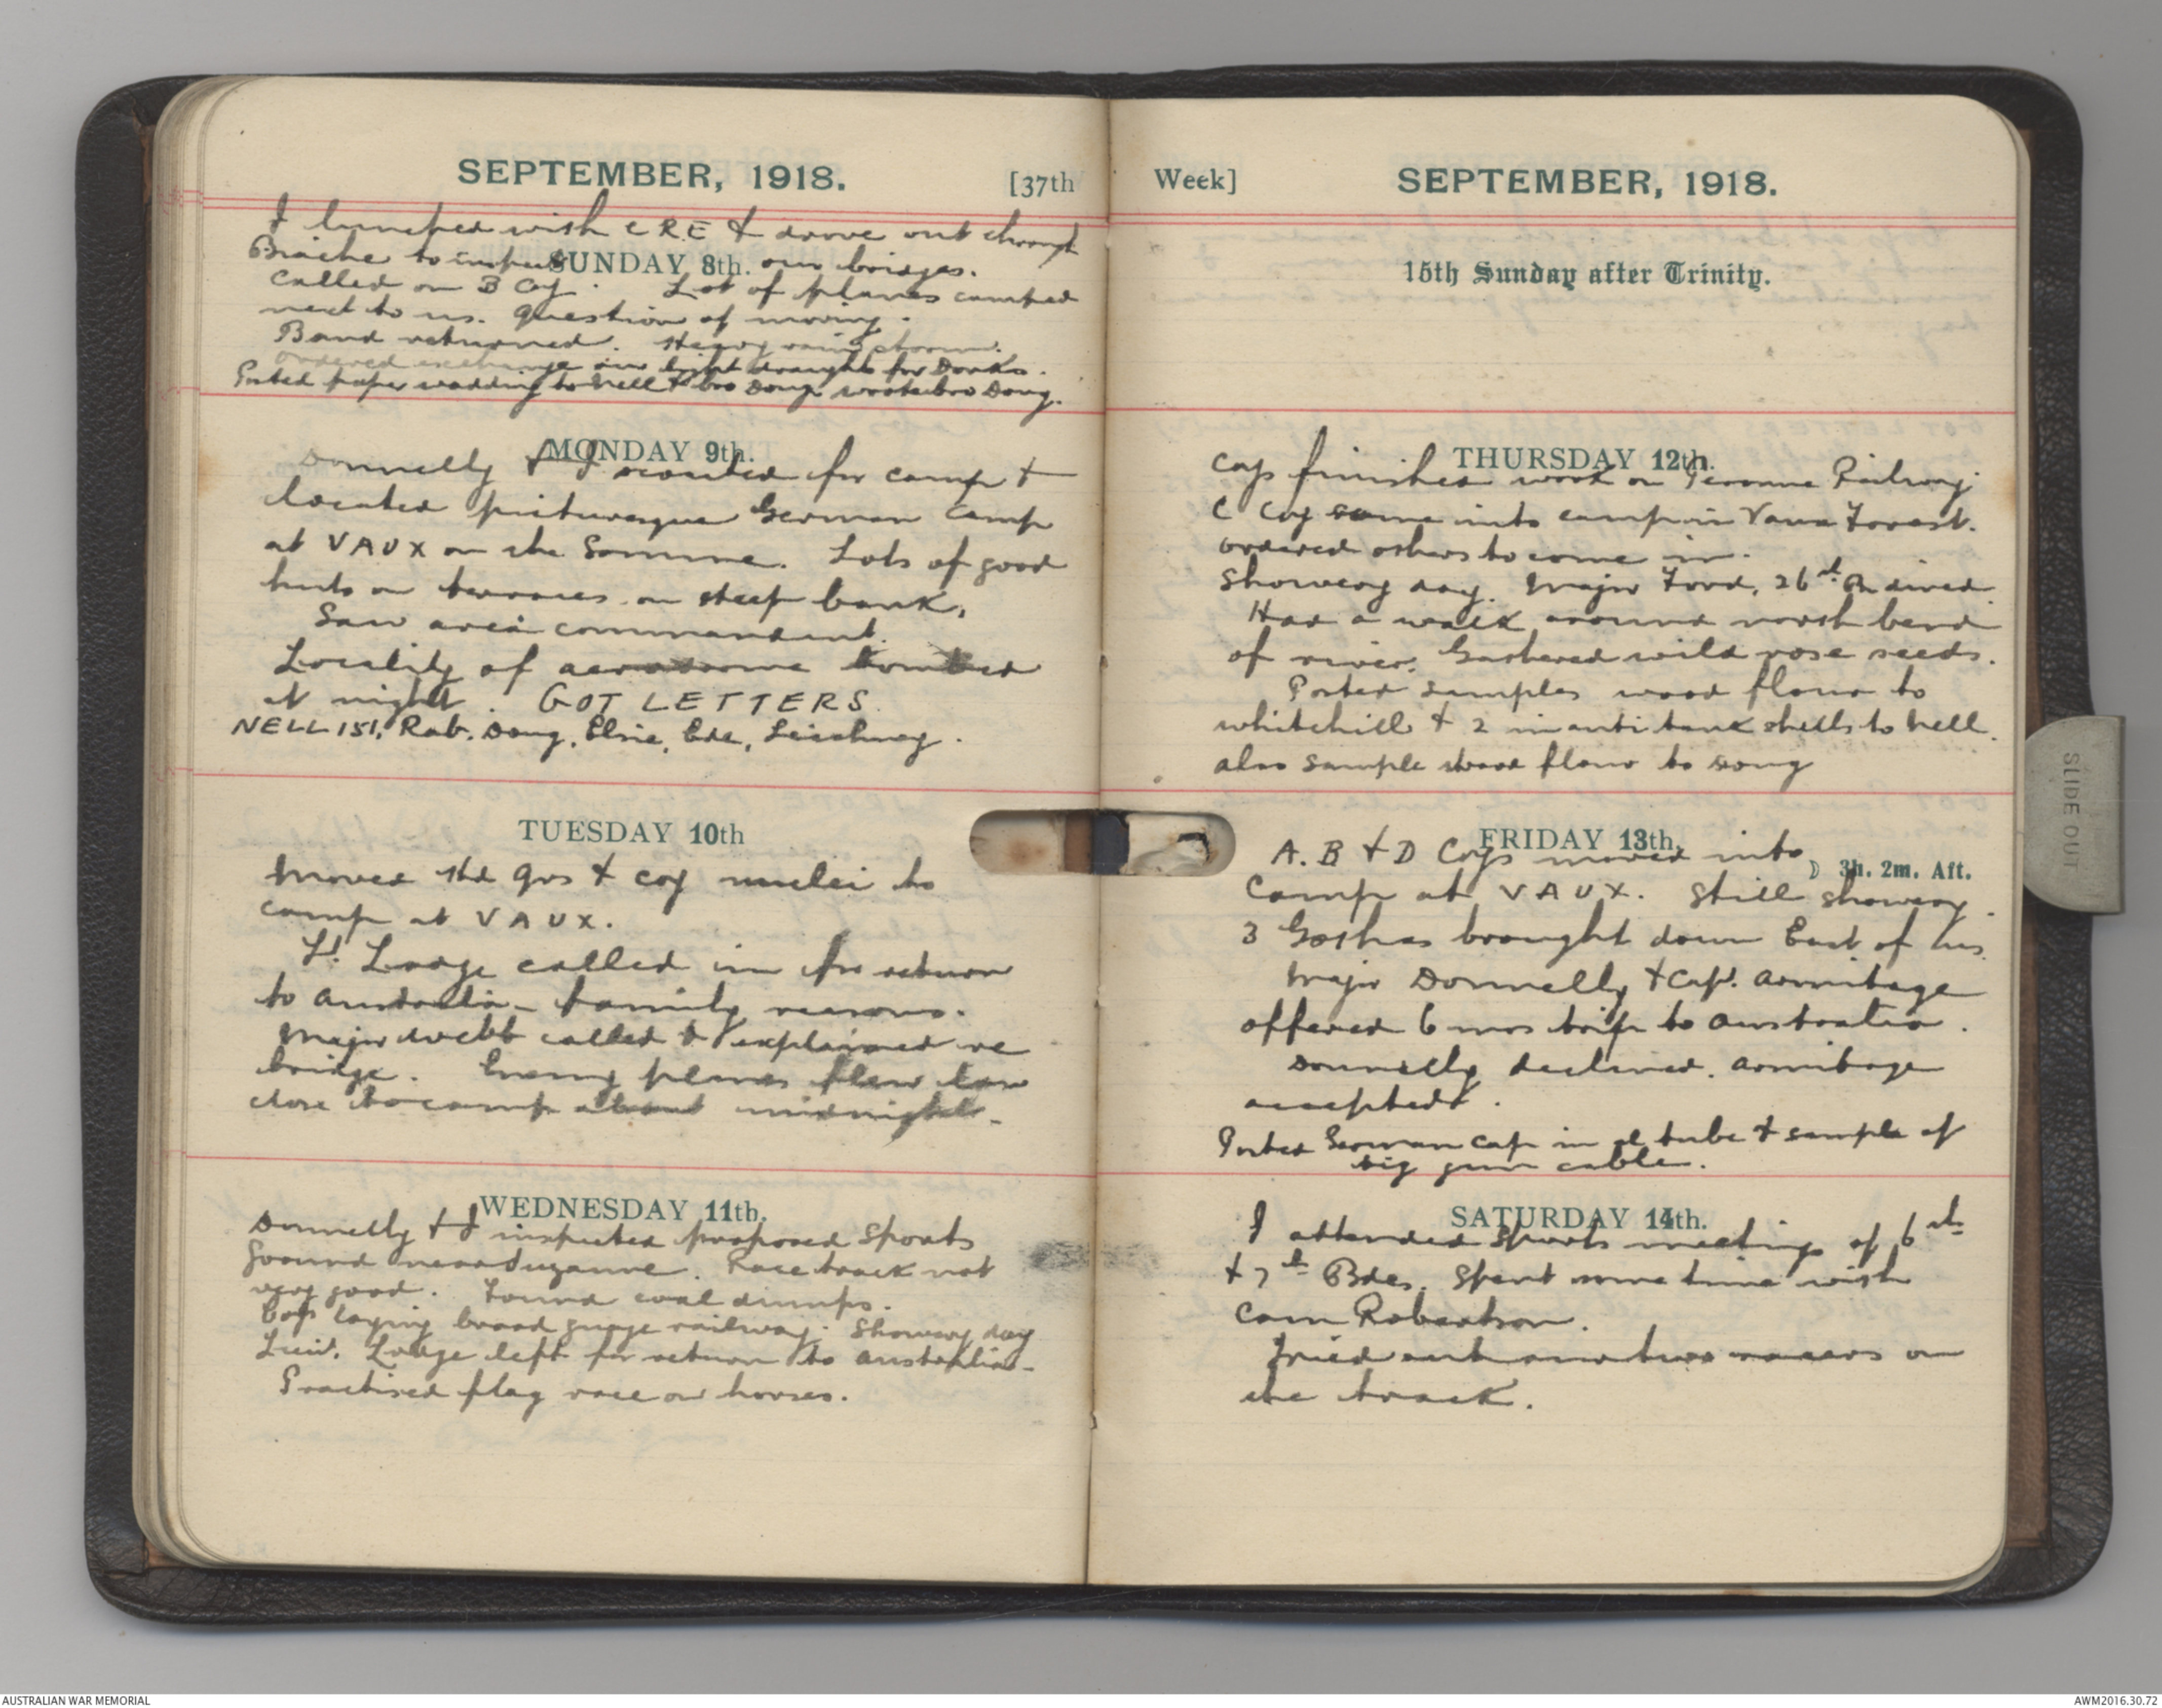 SEPTEMBER, 1918. [37th
I lunched with CRE & drove out through
Briache to inspect our bridges.
SUNDAY 8th.
called on B Coy. Lot of planes camped
next to us. Question of moving.
Band returned. Heavy rain storm.
Ordered exchange our light draughts for Donks.
Posted paper wadding to Nell & bro Doug. wrote bro Doug.
MONDAY 9th.
Donnelly & I scouted for camp &
located picturesque German camp
at VAUX on the Somme. Lots of good
huts on terraces on steep bank.
Saw area commandant.
Locality of aerodrome bombed
at night. GOT LETTERS.
NELL 151, Rab. Doug, Elsie, Ede,
TUESDAY 10th
Moved Hd Qrs & coy nuclei to
camp at VAUX.
Lt. Lodge called in for return
to Australia - family reasons.
Major Webb called & explained re
bridge. Enemy planes flew low
close to camp about midnight.
WEDNESDAY 11th.
Donnelly & I inspected proposed sports
ground near Suzanne. Race track not
very good. Found coal dumps.
Coys laying broad guage railway. Showery day
Lieut. Lodge left for return to Australia.
Practised flag race on horses.
Week] SEPTEMBER, 1918.
15th Sunday after Trinity.
THURSDAY 12th.
Coys finished work on Peronne Railway
C Coy came into camp in Vaux Forest.
Ordered others to come in.
Showery day. Major Ford, 26th Bn dined.
Had a walk around north bend
of river. Gathered wild rose seeds.
Posted samples wood flour to
Whitehill & 2 in anti tank shells to Nell.
also sample wood flour to Doug
FRIDAY 13th.
A. B & D Coys moved into
☽ 3h. 2m. Aft.
Camp at VAUX. Still showery.
3 Gothas brought down East of us.
Major Donnelly & Capt. Armitage
offered 6 mos trip to Australia.
Donnelly declined. Armitage
accepted.
Posted German cap in tube & sample of
big gun cable.
SATURDAY 14th.
I attended sports meetings of 6th
& 7th Bdes. Spent some time with
Cam Robertson.
Tried out our two racers on
the track.
SLIDE OUT
AUSTRALIAN WAR MEMORIAL
AWM2016.30.72